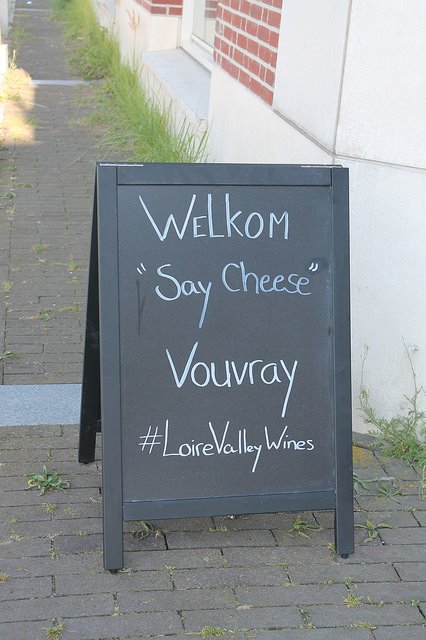 WELKOM
"Say Cheese"
Vouvray
#LoireValleyWines